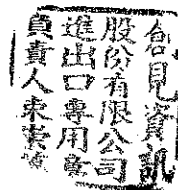 創見資訊
股份有限公司
進出口專用章
負責人束崇